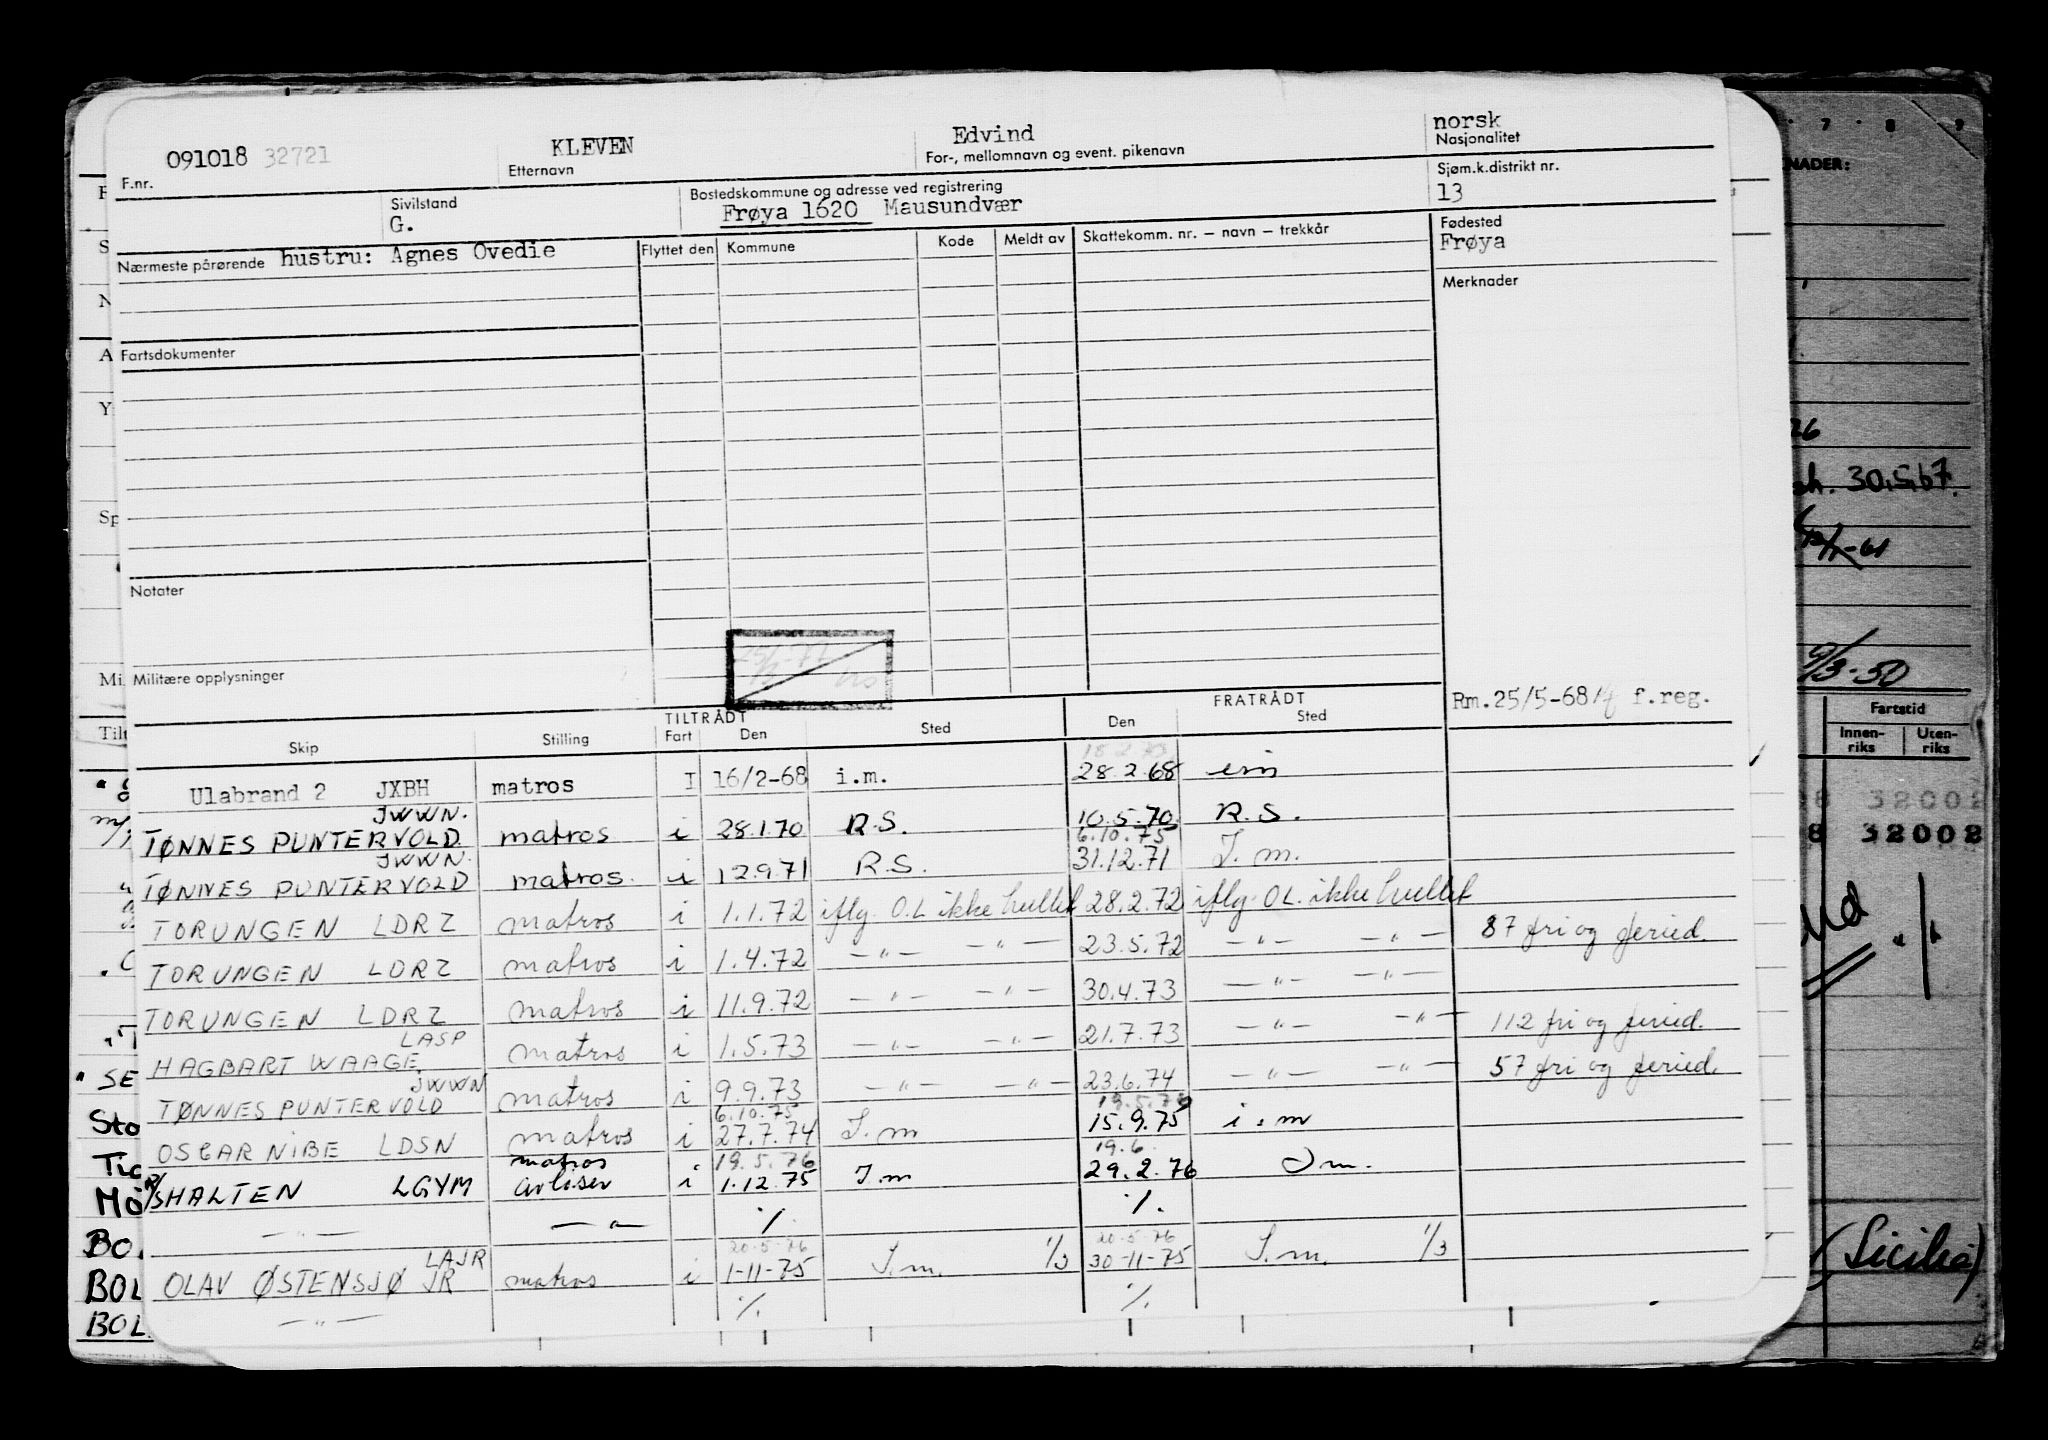 091018 32721 KLEVEN Edvind norsk
F.nr. Etternavn For-, mellomnavn og event. pikenavn Nasjonalitet
Sivilstand Bostedskommune og adresse ved registrering Sjøm.k.distrikt nr.
G. Frøya 1620 Mausundvær 13
Nærmeste pårørende hustru: Agnes Ovedie Flyttet den Kommune Kode Meldt av Skattekomm. nr. — navn — trekkår Fødested
Frøya
Merknader
Fartsdokumenter
Notater
Militære opplysninger
Rm.25/5-68 f.reg.
TILTRÅDT FRATRÅDT
Skip Stilling Fart Den Sted Den Sted
18.2.73
Ulabrand 2 JXBH matros I 16/2-68 i.m. 28.2.68 im
JWWN.
TØNNES PUNTERVOLD matros i 28.1.70 R.S. 10.5.70 R.S.
JWWN. 6.10.75
TØNNES PUNTERVOLD matros. i 12.9.71 R.S. 31.12.71 I.m.
TORUNGEN LDRZ matros i 1.1.72 iflg. O.L ikke hullet 28.2.72 iflg. O.L. ikke hullet
TORUNGEN LDRZ matros i 1.4.72 — " — — " — 23.5.72 — " — — " — 87 fri og feried.
TORUNGEN LDRZ matros i 11.9.72 — " — — " — 30.4.73 — " — — " —
LASP
HAGBART WAAGE matros i 1.5.73 — " — — " — 21.7.73 — " — — " — 112 fri og feried.
JWWN
TØNNES PUNTERVOLD matros i 9.9.73 — " — — " — 23.6.74 — " — — " — 57 fri og feried.
6.10.75 19.5.76
OSCAR NIBE LDSN matros i 27.7.74 I.m 15.9.75 i.m
matros 19.5.76 19.6.
R/S HALTEN LGYM avløser i 1.12.75 I.m 29.2.76 I m.
— " — — " — %. %.
20.5.76 20.5.76
LAJR
OLAV ØSTENSJØ JR matros i 1-11-75 I.m. 1/3 30-11-75 I.m. 1/3
— " — %. %.
7 8 9
NADER:
26
30.5.67.
9/3-50
Fartstid
Innen-riks Uten-riks
8 32002
8 32002
(Sicilia)
A
Y
Sp
Mi
Til
SE
Sto
BO
BOL
BOL